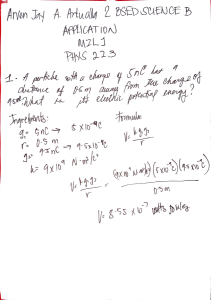 Arvan Jay A. Artualla 2 BSED SCIENCE B
APPLICATION
M2L1
PHYS 223
1. A particle with a charge of 5nC has a
distance of 0.5m away from the charge of
9.5nC. What is its electric potential energy?
Ingredients: Formula:
q= 5nC → 5 x10⁻⁹C
r= 0.5 m
q₂= 9.5nC → 9.5x10⁻⁹C
k= 9 x10⁹ N·m²/c²
V= k q q₂ / r
V= k q q₂ / r = (9x10⁹ N·m²/c²)(5x10⁻⁹C)(9.5x10⁻⁹C) / 0.5m
V= 8.55 x 10⁻⁷ joules